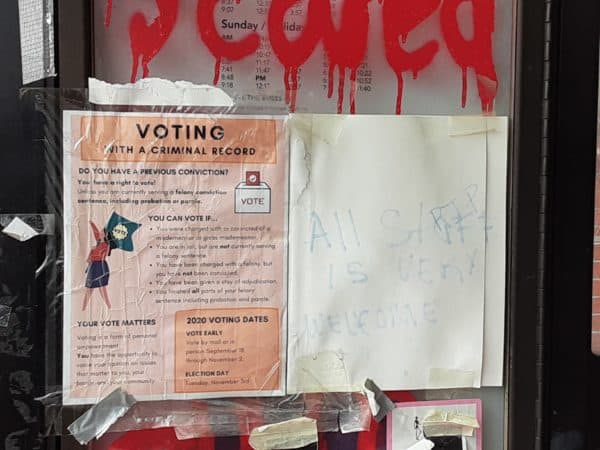 Scared
Sunday / Holiday
AM
7:41
8:48
9:18
PM
12:17
10:47
11:17
11:47
10:22
10:52
11:40
VOTING
WITH A CRIMINAL RECORD
DO YOU HAVE A PREVIOUS CONVICTION?
You have a right to vote!
Unless you are currently serving a felony conviction
sentence, including probation or parole.
VOTE
VOTE
YOU CAN VOTE IF...
You were charged with or convicted of a
misdemeanor or gross misdemeanor.
You are in jail, but are not currently serving
a felony sentence.
You have been charged with a felony, but
you have not been convicted.
You have been given a stay of adjudication.
You finished all parts of your felony
sentence including probation and parole.
YOUR VOTE MATTERS
Voting is a form of personal
empowerment.
You have the opportunity to
voice your opinion on issues
that matter to you, your
family, and your community.
2020 VOTING DATES
VOTE EARLY
Vote by mail or in
person September 18
through November 2.
ELECTION DAY
Tuesday, November 3rd
All
is very
WELCOME